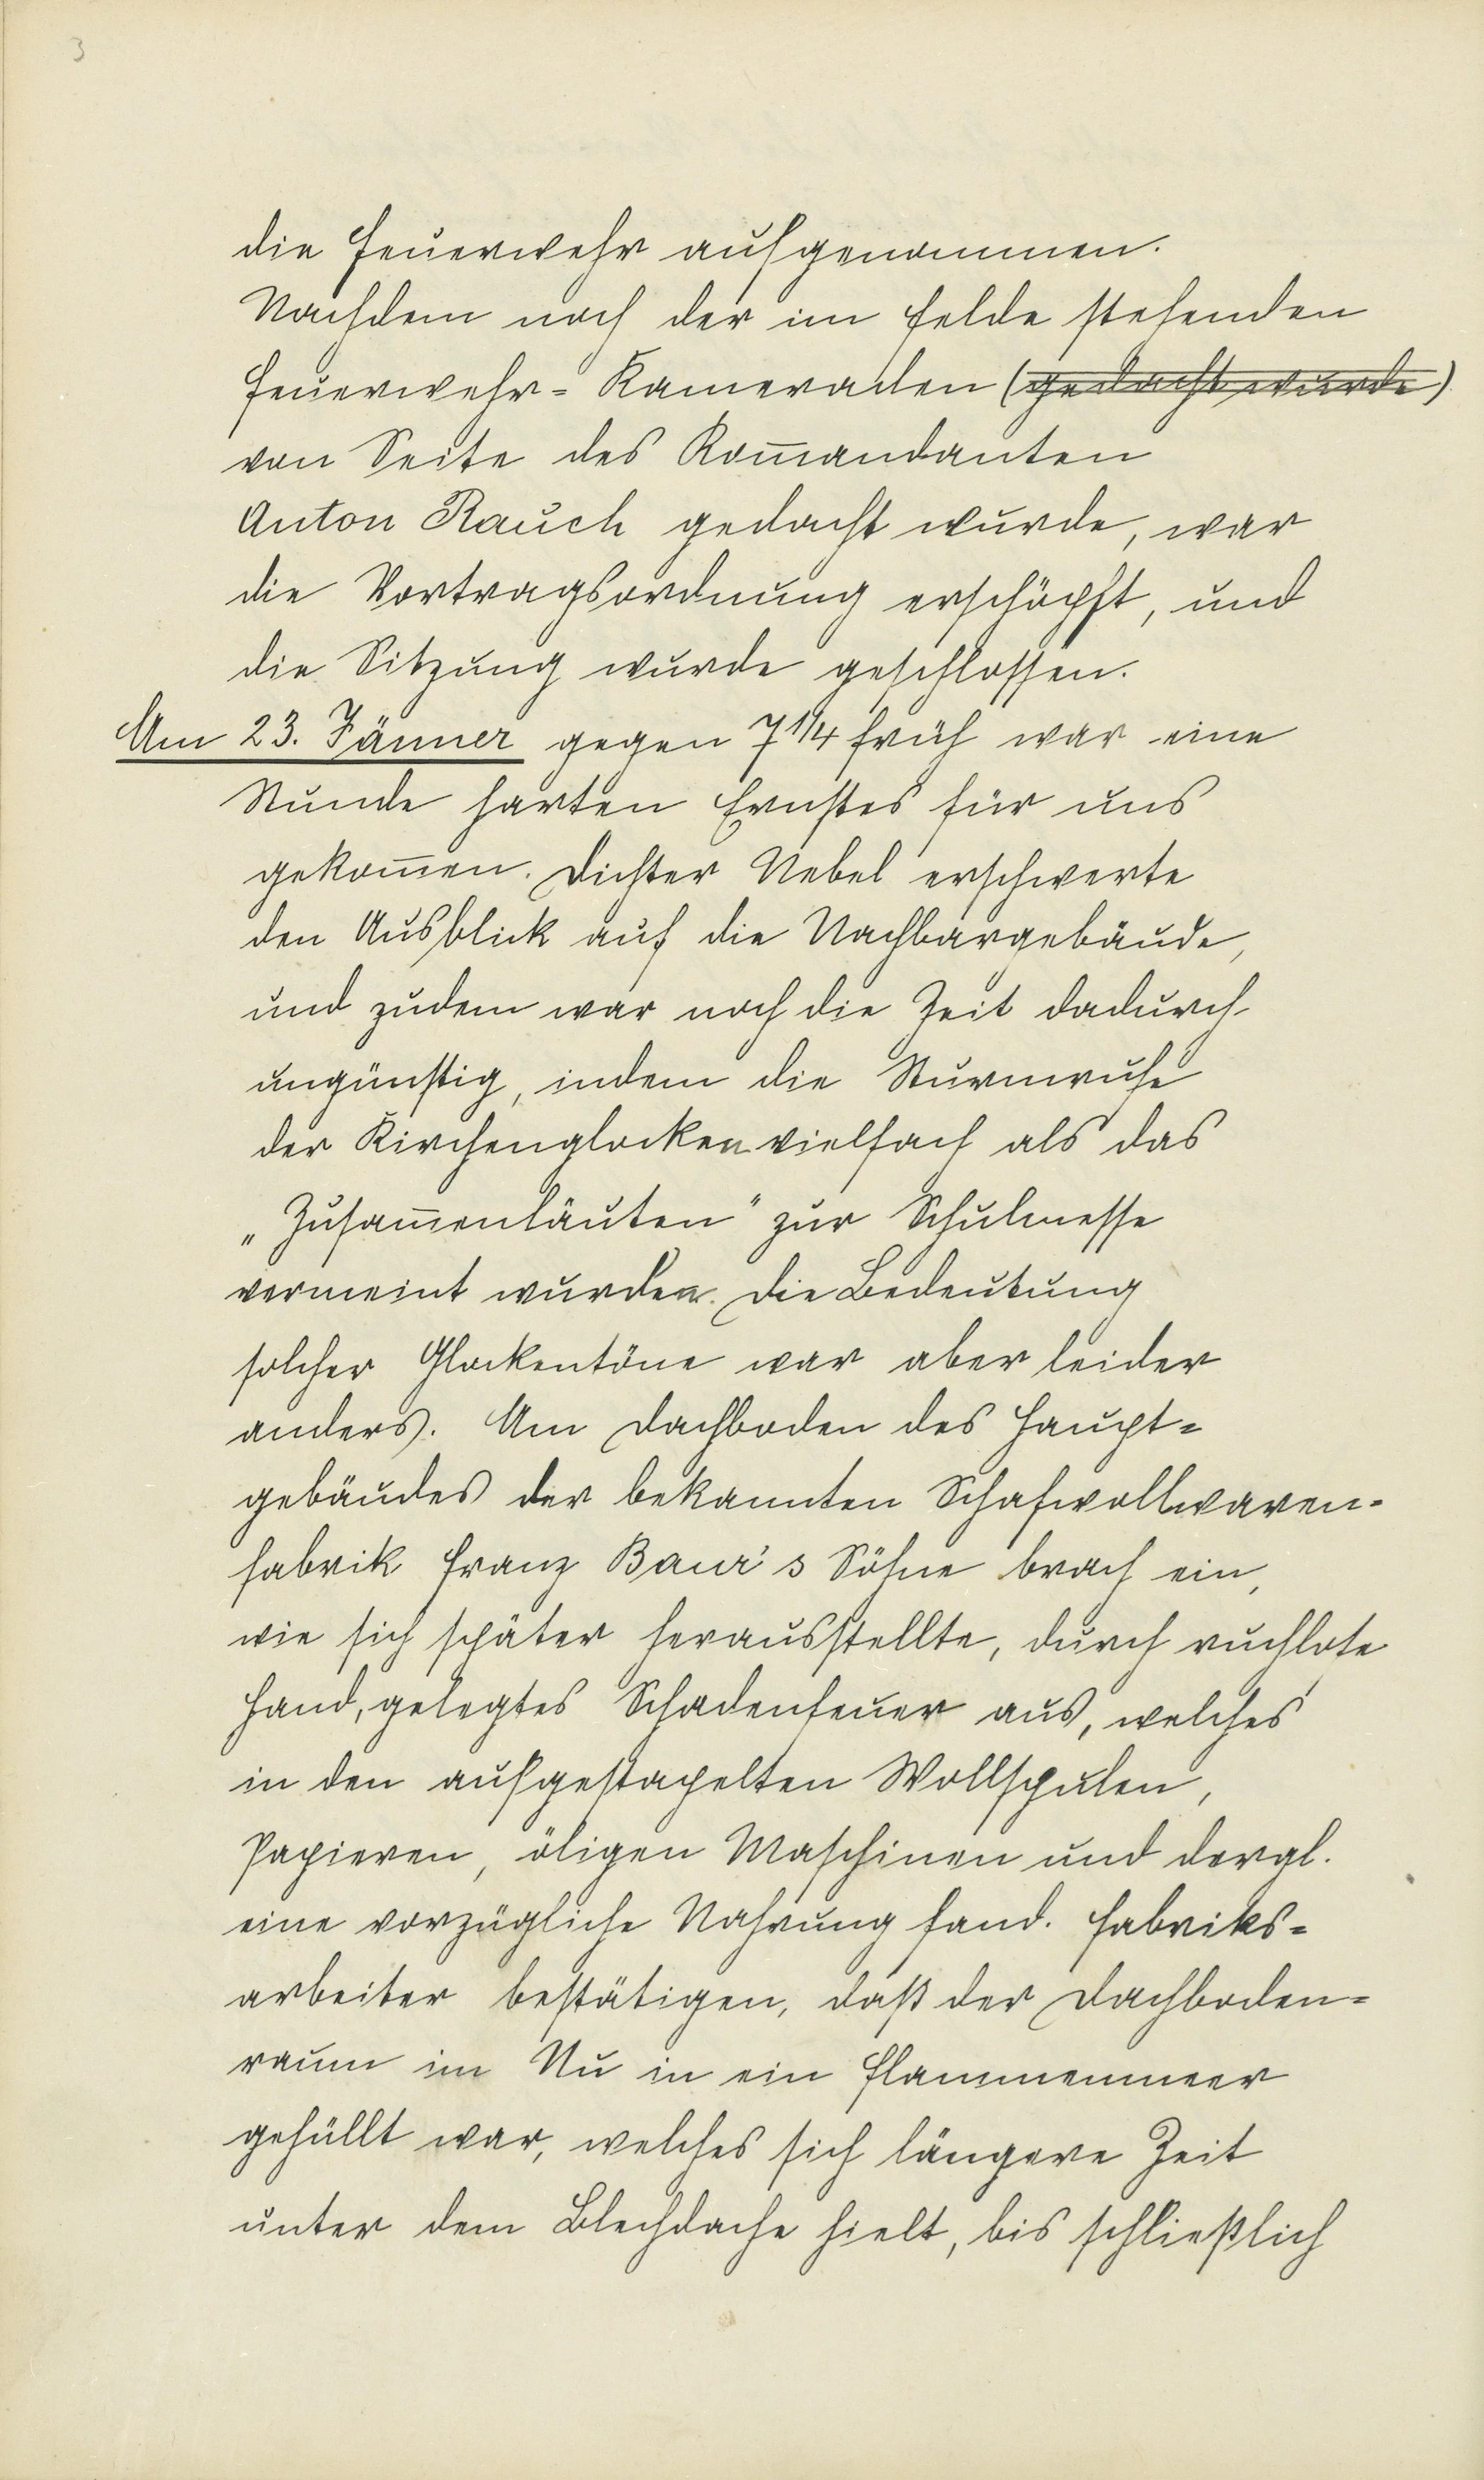 3
die Feuerwehr aufgenommen.
Nachdem noch der im Felde stehenden
Feuerwehr= Kameraden (gedacht wurde)
von Seite des Kom̅andanten
Anton Rauch gedacht wurde, war
die Vortragsordnung erschöpft, und
die Sitzung wurde geschlossen.
Am 23. Jänner gegen 7 1/4 früh war eine
Stunde harten Ernstes für uns
gekom̅en. Dichter Nebel erschwerte
den Ausblick auf die Nachbargebäude,
und zudem war noch die Zeit dadurch
ungünstig, indem die Sturmrufe
der Kirchenglocken vielfach als das
„Zusam̅enläuten" zur Schulmesse
vermeint wurden. Die Bedeutung
solcher Glockentöne war aber leider
anders. Am Dachboden des Haupt=
gebäudes der bekannten Schafwollwaren-
fabrik Franz Baur's Söhne brach ein,
wie sich später herausstellte, durch ruchlose
Hand, gelegtes Schadenfeuer aus, welches
in den aufgestapelten Wollspulen,
Papieren, öligen Maschinen und dergl.
eine vorzügliche Nahrung fand. Fabriks=
arbeiter bestätigen, daß der Dachboden=
raum im Nu in ein Flammenmeer
gehüllt war, welches sich längere Zeit
unter dem Blechdache hielt, bis schließlich